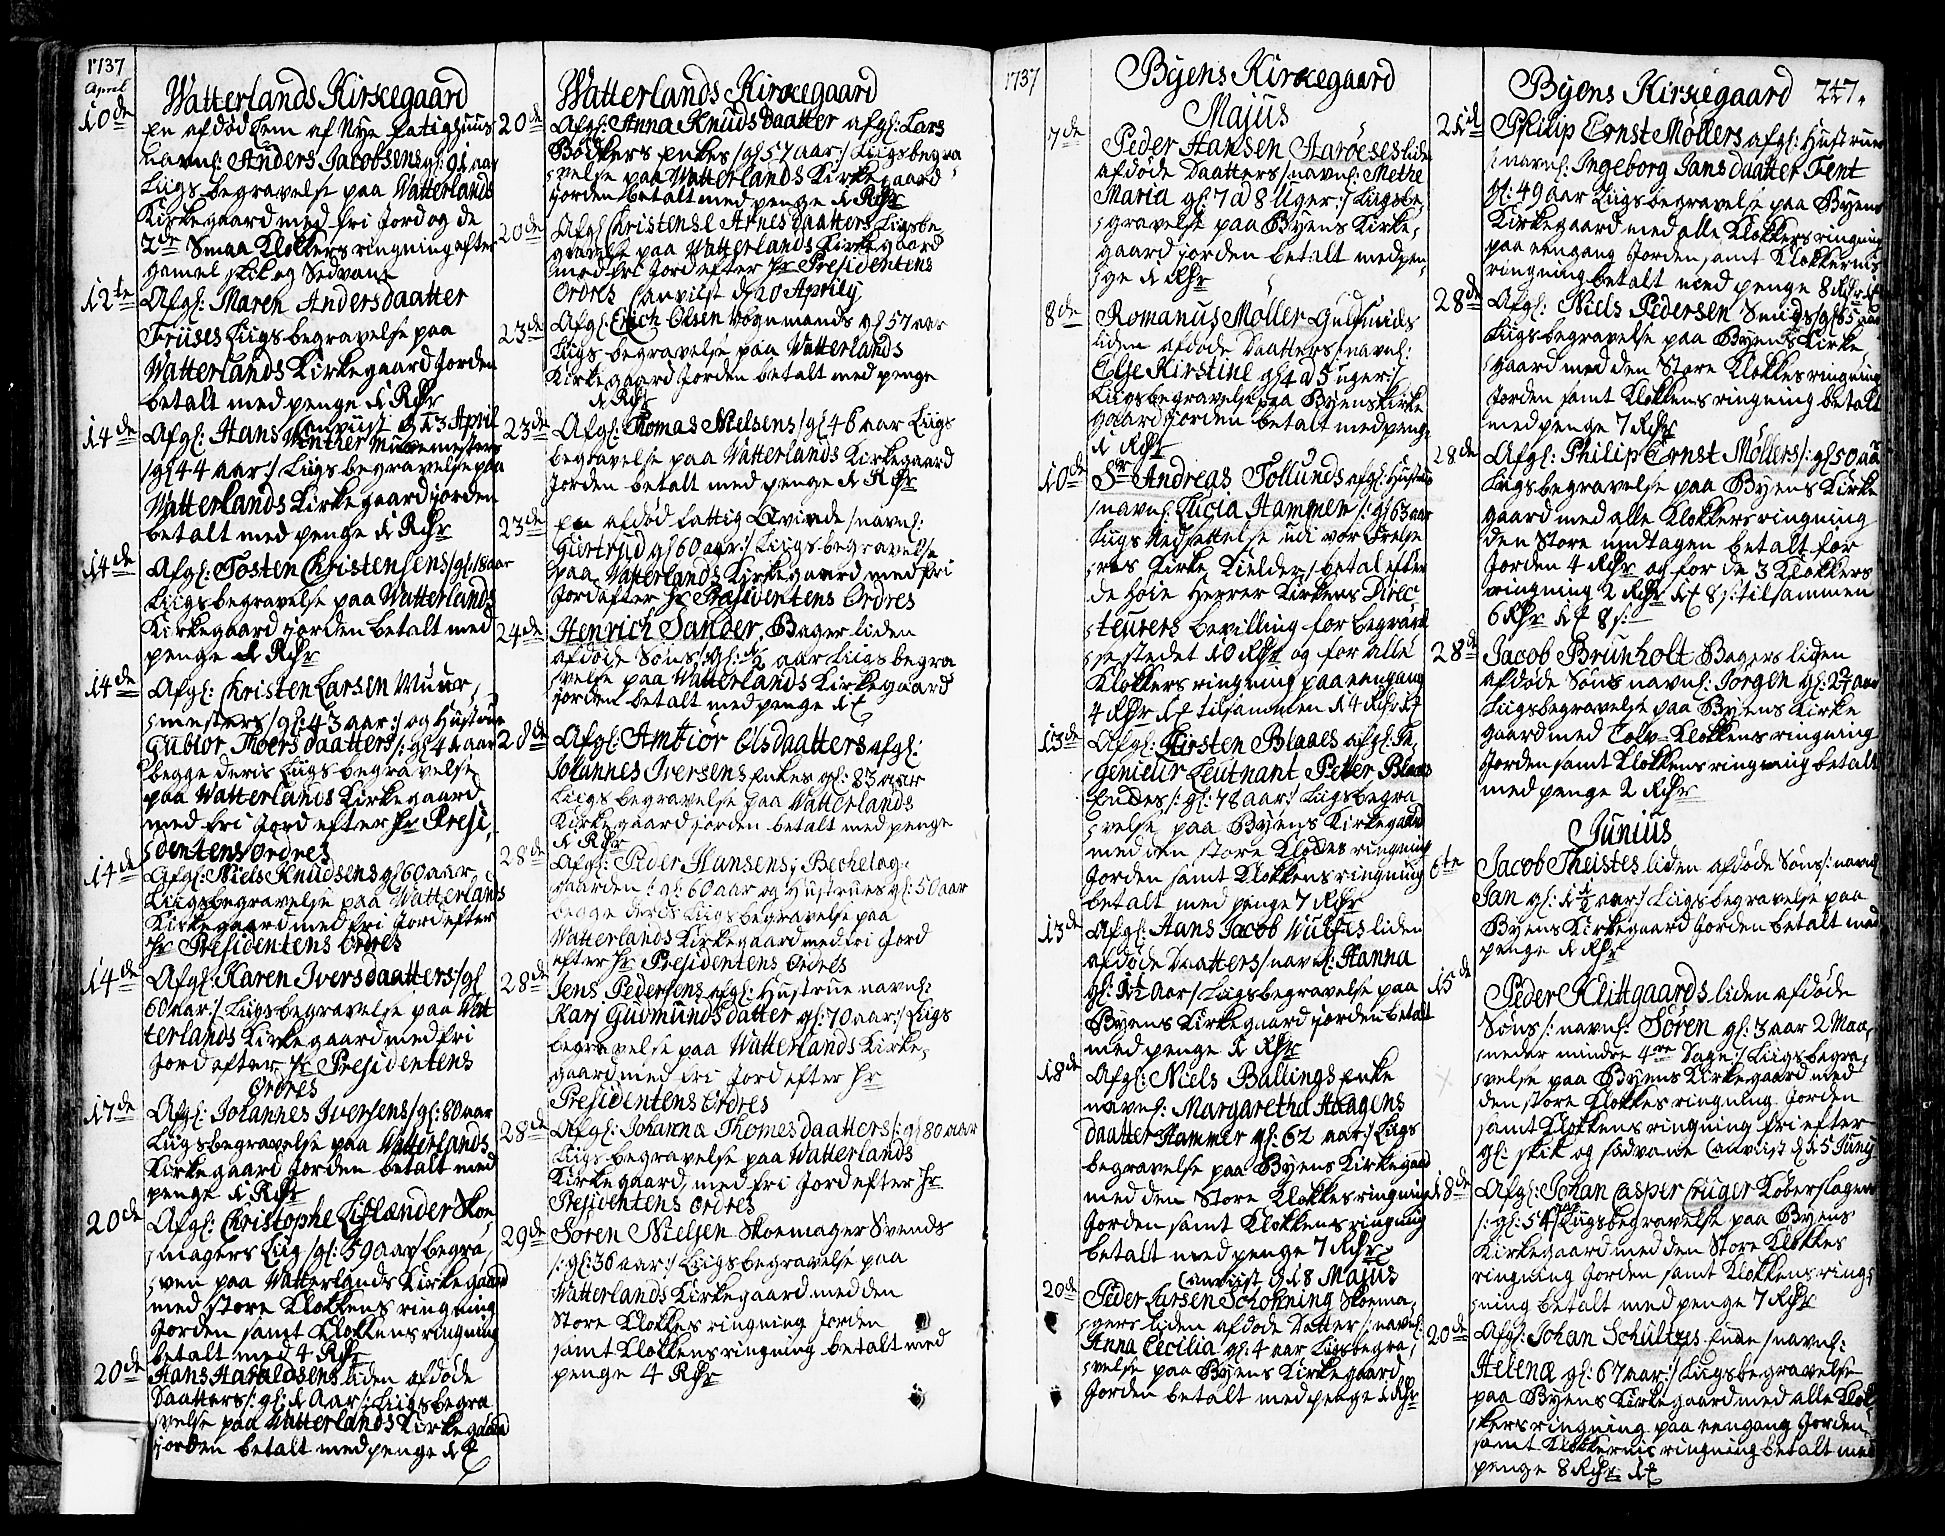 1737
April
Watterlands Kirkegaard
10de
En afdød Lem af Nye fatighuus
navnl: Anders Jacobsens gl: 91 aar
Liigs begravelse paa Watterlands
Kirkegaard med fri Jord og de
2de Smaa Klokkers ringning efter
gamel skik og Sedvane
12te
Afgl: Maren Andersdaatter
Truses Liigs begravelse paa
Watterlands Kirkegaard Jorden
betalt med penge 1 Rdr
Canviist d 13 April
14de
Afgl: Hans Winther Muuremesters
/gl 44 aar:/ Liigs begravelse paa
Watterlands Kirkegaard jorden
betalt med penge 1 Rdr
14de
Afgl: Tosten Christensens /gl: 18 aar
Liigs begravelse paa Watterlands
Kirkegaard jorden betalt med
penge 1 Rdr
14de
Afgl: Kristen Larsen Muur,
mesters /gl: 43 aar:/ og Hustrue
Gubior Thoersdaatters /: gl 41 aar
begge deris Liigs begravelse
paa Watterlands Kirkegaard
med fri Jord efter Hr Presi,
dentens Ordres
14de
Afgl: Niels Knudsens gl 60 aar,
Liigsbegravelse paa Watterlands
Kirkegaard med fri Jord efter
Hr Presidentens Ordres
14de
Afgl: Karen Iversdaatters /gl
60 aar:/ Liigsbegravelse paa Wat
terlands Kirkegaard med fri
Jord efter Hr Presidentens
Ordres
17de
Afgl: Johannes Iversens /gl: 80 aar
Liigsbegravelse paa Watterlands
Kirkegaard Jorden betalt med
penge 1 Rdr
20de
Afgl: Christophe Liflænder Skoe,
magers Liig /gl: 59 aar/ begra,
ven paa Watterlands Kirkegaard
med store Klokkens ringning
Jorden samt Klokkens ringning
betalt med 4 Rdr
20de
Hans Haraldsens liden afdøde
Daatters /: gl: 1 Aar:/ Liigsbegra
velse paa Watterlands Kirkegaard
jorden betalt med penge
Watterlands Kirkegaard
20de
Afgl: Anna Knudsdaatter afgl: Lars
Bødkers Enkes /gl 57 aar:/ Liigsbegra
velse paa Watterlands Kirkegaard
jorden betalt med penge 1 Rdr
20de
Afgl Christense Arnesdaatters Liigsbe
gravelse paa Watterlands Kirkegaard
med fri Jord efter Hr Presidentens
Ordres Canviist d 20 Aprily
23de
Afgl: Erich Olsen Vognmands gl 57 aar
Liigs begravelse paa Watterlands
Kirkegaard Jorden betalt med penge
1 Rdr
23de
Afgl: Thomas Nielsens /gl 46 aar Liigs
begravelse paa Watterlands Kirkegaard
Jorden betalt med penge 1 Rdr
23de
En afdød fattig Qvinde /navnl:
Giertrud gl 60 aar:/ Liigs begravelse
paa Watterlands Kirkegaard med fri
Jord efter Hr Præsidentens Ordres
24de
Henrich Sander, Bager liden
afdøde Søns /gl: 1/2 aar Liigs begra
velse paa Watterlands Kirkegaard
jorden betalt med penge
28de
Afgl: Ambiør Olsdaatters afgl:
Johannes Iversens Enkes gl: 83 aar
Liigs begravelse paa Watterlands
Kirkegaard jorden betalt med penge
1 Rdr
28de
Afgl: Peder Hansens; Bechelag,
gaarden /: gl: 60 aar og Hustrues gl: 50 aar
begge deris Liigs begravelse paa
Watterlands Kirkegaard med fri Jord
efter Hr Presidentens Ordres
28de
Jens Pedersens afgl: Hustrue navnl:
Karj Gudmundsdatter gl: 70 aar:/ Liigs
begravelse paa Watterlands Kirke,
gaard med fri Jord efter Hr
Presidentens Ordres
28de
Afgl: Johanna Thomesdaatters /: gl 80 aar
Liigs begravelse paa Watterlands
Kirkegaard, med fri Jord efter Hr
Presidentens Ordres
29de
Søren Nielsen Skoemager Svends
/: gl: 36 aar:/ Liigsbegravelse paa
Watterlands Kirkegaard med den
Store Klokkes ringning Jorden
samt Klokkens ringning betalt med
penge 4 Rdr
1737
Byens Kirkegaard
Majus
7de
Peder Hansen Aarøeses liden
afdøde Daatters /navnl: Methe
Maria gl: 7 a 8 Uger:/ Liigsbe,
gravelse paa Byens Kirke,
gaard jorden betalt med pen,
ge 1 Rdr
8de
Romanus Møller Gulsmids
liden afdøde Daatters /navnl:
Else Kirstine gl 4 a 5 uger:/
Liigsbegravelse paa Byens Kirke
gaard jorden betalt med penge
1 Rdr
10de
Sr Andreas Tollunds afgl: Hustrue
/navnl: Lucia Hammen /: gl 63 aar
Liigs Nedsettelse udi vor Frelse
res Kirke Kielder, betal efter
de høie Herrer Kirkens Direc
teurers bevilling for begravel
se stedet 10 Rdr og for alle
Klokkers ringning paa eengang
4 Rdr tilsammen 14 Rdr
13de
Afgl: Kirsten Blaaes afgl: In,
genieur Leutnant Peter Blaaes
Enkes /: gl: 78 aar:/ Liigsbegra
velse paa Byens Kirkegaard
med den store Klokkes ringning
Jorden samt Klokkens ringning
betalt med penge 7 Rdr
13de
Afgl: Hans Jacob Wulfes liden
afdøde Daatters /navnl: Hanna
gl: 1 1/2 Aar/ Liigsbegravelse paa
Byens Kirkegaard jorden betalt
med penge 1 Rdr
18de
Afgl: Niels Ballings Enke
navnl: Margaretha Haagens
daatter Hammer gl: 62 aar:/ Liigs
begravelse paa Byens Kirkegaard
med den Store Klokkes ringning
Jorden samt Klokkens ringning
betalt med penge 7 Rdr
Canviist d 18 Majus
20de
Peder Larsen Schofning Skoema,
gers liden afdøde Datter /navnl:
Anna Cecilia gl: 4 aar Liigsbegra,
velse paa Byens Kirkegaard
Jorden betalt med penge 1 Rdr
Byens Kirkegaard
247.
21de
Philip Ernst Møllers afgl: Hustrue
/: navnl: Ingeborg Jansdaatter Tent
gl: 49 aar Liigsbegravelse paa Byens
Kirkegaard med alle Klokkers ringning
paa eengang Jorden samt Klokkernis
ringning betalt med penge 8 Rdr
28de
Afgl: Niels Pedersen Smids /gl 65 aar
Liigsbegravelse paa Byens Kirke
gaard med den Store Klokkes ringning
Jorden samt Klokkens ringning betalt
med penge 7 Rdr
28de
Afgl: Philip Ernst Møllers /: gl 50 aar
Liigsbegravelse paa Byens Kirke
gaard med alle Klokkers ringning
den Store undtagen betalt for
Jorden 4 Rdr og for de 3 Klokkers
ringning 2 Rdr 8 s: tilsammen
6 Rdr 8 s:
28de
Jacob Brunholt Bagers liden
afdøde Søns navnl: Jørgen gl: 2 3/4 aar
Liigsbegravelse paa Byens Kirke
gaard med Tolv Klokkens ringning
Jorden samt Klokkens ringning betalt
med penge 2 Rdr
Junius
6te
Jacob Theistes liden afdøde Søns /: navnl:
Jan gl: 1 1/2 aar:/ Liigsbegravelse paa
Byens Kirkegaard Jorden betalt med
penge 1 Rdr
15de
Peder Klittgaards liden afdøde
Søns /: navnl: Søren gl: 3 aar 2 Maa,
neder mindre 4re Dage:/ Liigsbegra,
velse paa Byens Kirkegaard med
den store Klokkes ringning Jorden
samt Klokkens ringning fri efter
gl: skik og sædvane Canviist d 15 Junij
18de
Afgl: Johan Casper Cruger Koberslagers
/: gl: 54 aar Liigsbegravelse paa Byens
Kirkegaard med den Store Klokkes
ringning Jorden samt Klokkens ring,
ning betalt med penge 7 Rdr
20de
Afgl: Johan Schultzes Enke /navnl:
Helena gl: 67 aar:/ Liigsbegravelse
paa Byens Kirkegaard med alle Klok,
kers ringning paa eengang Jorden,
samt Klokkernis ringning betalt med
penge 8 Rdr